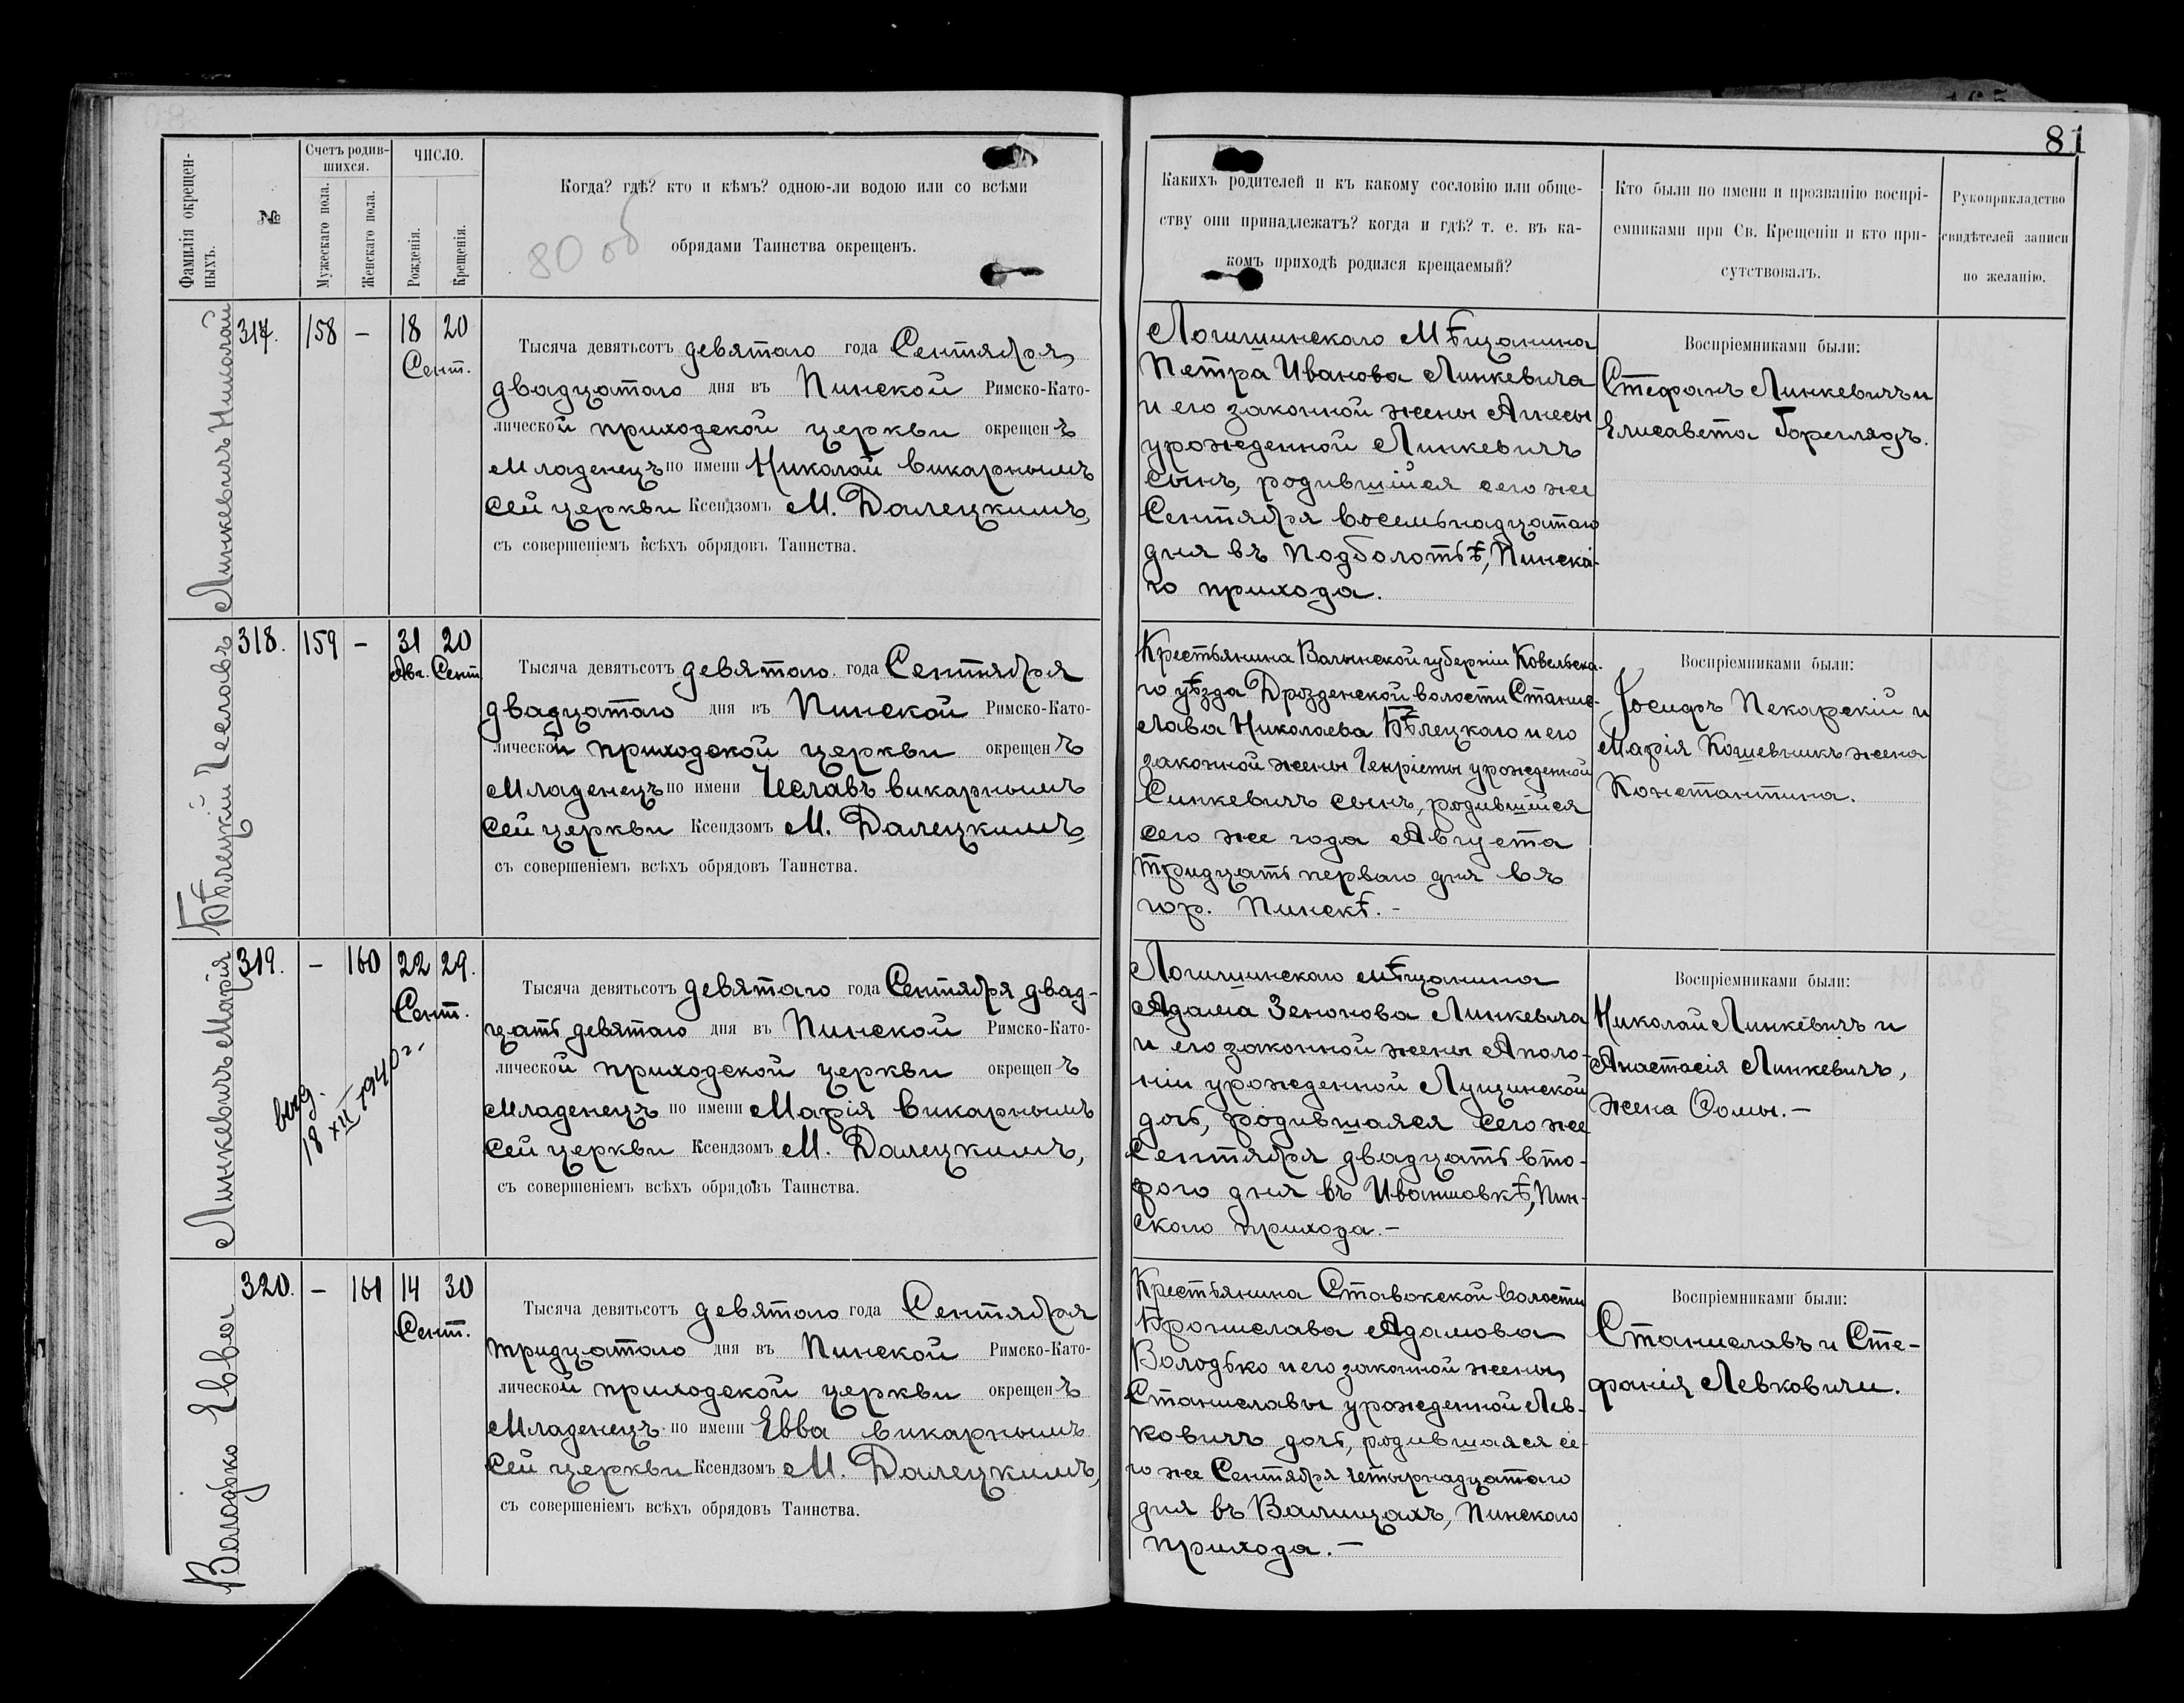 81
Фамилія окрещен-
ныхъ.
№
Счетъ родив-
шихся.
Мужескаго пола.
Женскаго пола.
ЧИСЛО.
Рожденія.
Крещенія.
Когда? гдѣ? кто и кѣмъ? одною-ли водою или со всѣми
обрядами Таинства окрещенъ.
80 об
Какихъ родителей и къ какому сословію или обще-
ству они принадлежатъ? когда и гдѣ? т. е. въ ка-
комъ приходѣ родился крещаемый?
Кто были по имени и прозванію воспрі-
емниками при Св. Крещеніи и кто при-
сутствовалъ.
Рукоприкладство
свидѣтелей записи
по желанію.
Линкевичъ Николай
317.
158
–
18
20
Сент.
Тысяча девятьсотъ девятаго года Сентября,
двадцатаго дня въ Пинской Римско-Като-
лической приходской церкви окрещенъ
Младенецъ по имени Николай викарнымъ
сей церкви Ксендзомъ М. Далецкимъ,
съ совершеніемъ всѣхъ обрядовъ Таинства.
Логишинскаго Мѣщанина
Петра Иванова Линкевича
и его законной жены Агнесы
урожденной Линкевичъ
сынъ, родившійся сего же
Сентября восемьнадцатаго
дня въ Подболотьѣ, Пинска-
го прихода.
Воспріемниками были:
Стефанъ Линкевичъ и
Елисавета Гореглядъ.
Бѣлецкій Чеславъ
318.
159
–
31
20
Авг. Сент.
Тысяча девятьсотъ девятаго года Сентября
двадцатаго дня въ Пинской Римско-Като-
лической приходской церкви окрещенъ
Младенецъ по имени Чеславъ викарнымъ
сей церкви Ксендзомъ М. Далецкимъ,
съ совершеніемъ всѣхъ обрядовъ Таинства.
Крестьянина Волынской губерніи Ковельска-
го уѣзда Дрозденской волости Станис-
лава Николаева Бѣлецкаго и его
законной жены Генріеты урожденной
Синкевичъ сынъ, родившійся
сего же года Августа
тридцать перваго дня въ
гор. Пинскѣ.-
Воспріемниками были:
Іосифъ Пекарскій и
Марія Кошевникъ жена
Константина.
Линкевичъ Марія
319.
–
160
22
29.
Сент.
выд.
18 XII 1940 г.
Тысяча девятьсотъ девятаго года Сентября двад-
цать девятаго дня въ Пинской Римско-Като-
лической приходской церкви окрещенъ
Младенецъ по имени Марія викарнымъ
сей церкви Ксендзомъ М. Далецкимъ,
съ совершеніемъ всѣхъ обрядовъ Таинства.
Логишинскаго мѣщанина
Адама Зенонова Линкевича
и его законной жены Аполо-
ніи урожденной Лущинской
дочь, родившаяся сего же
Сентября двадцать вто-
рого дня въ Иваншовкѣ, Пин-
скаго прихода.-
Воспріемниками были:
Николай Линкевичъ и
Анастасія Линкевичъ,
жена Ѳомы.-
Володько Евва
320.
–
161
14
30
Сент.
Тысяча девятьсотъ девятаго года Сентября
тридцатаго дня въ Пинской Римско-Като-
лической приходской церкви окрещенъ
Младенецъ по имени Евва викарнымъ
сей церкви Ксендзомъ М. Далецкимъ,
съ совершеніемъ всѣхъ обрядовъ Таинства.
Крестьянина Ставокской волости
Бронислава Адамова
Володько и его законной жены
Станиславы урожденной Лев-
ковичъ дочь, родившаяся се-
го же Сентября четырнадцатаго
дня въ Валищахъ, Пинскаго
прихода.-
Воспріемниками были:
Станиславъ и Сте-
фанія Левковичи.